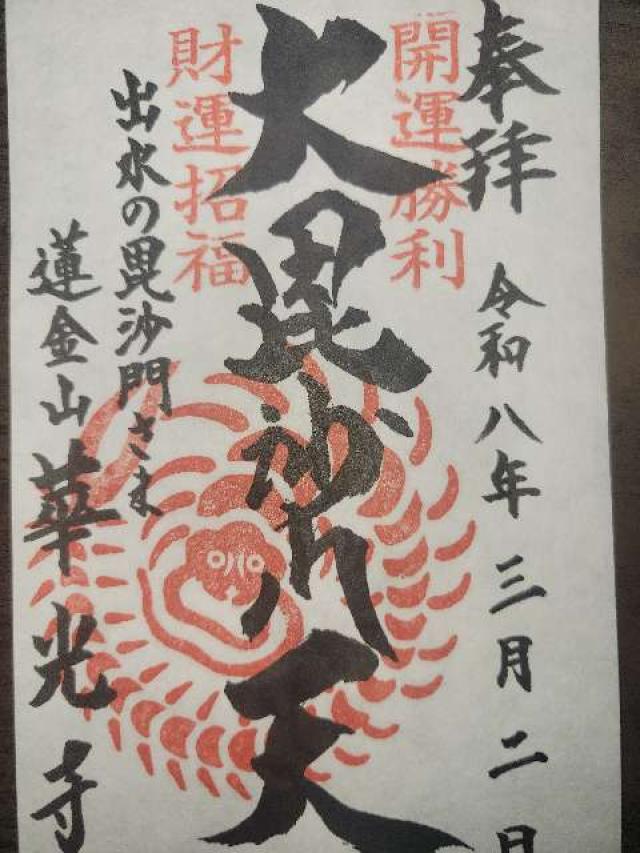 奉拝
令和八年三月二日
開運勝利
大毘沙門天
財運招福
出水の毘沙門さま
蓮金山華光寺